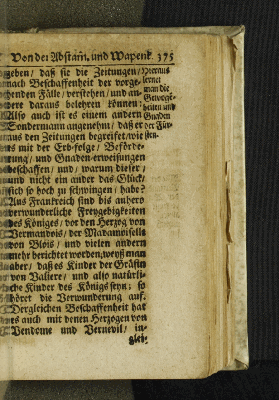 Von der Abstam. und Wapenk. 375
geben / daß sie die Zeitungen /
nach Beschaffenheit der vorge-
henden Fälle / verstehen / und an-
dere daraus belehren können:
Also auch ist es einem andern
Sondermann angenehm / daß er
aus den Zeitungen begreifet / wie
es mit der Erb-folge / Beförde-
rung / und Gnaden-erweisungen
beschaffen / und / warum dieser /
und nicht ein ander das Glück /
sich so hoch zu schwingen / habe?
Aus Frankreich sind bis anhero
verwunderliche Freygebigkeiten
des Königes / vor den Herzog von
Vermandois / der Madamoiselle
von Blois / und vielen andern
mehr berichtet worden; weyß man
aber / daß es Kinder der Gräfin
von Valiere / und also natürli-
che Kinder des Königs seyn; so
höret die Verwunderung auf.
Dergleichen Beschaffenheit hat
es auch mit denen Herzogen von
Vendome und Verneuil / in-
gleich-
Hieraus
lernet
man die
Gnaden
der Für-
sten.